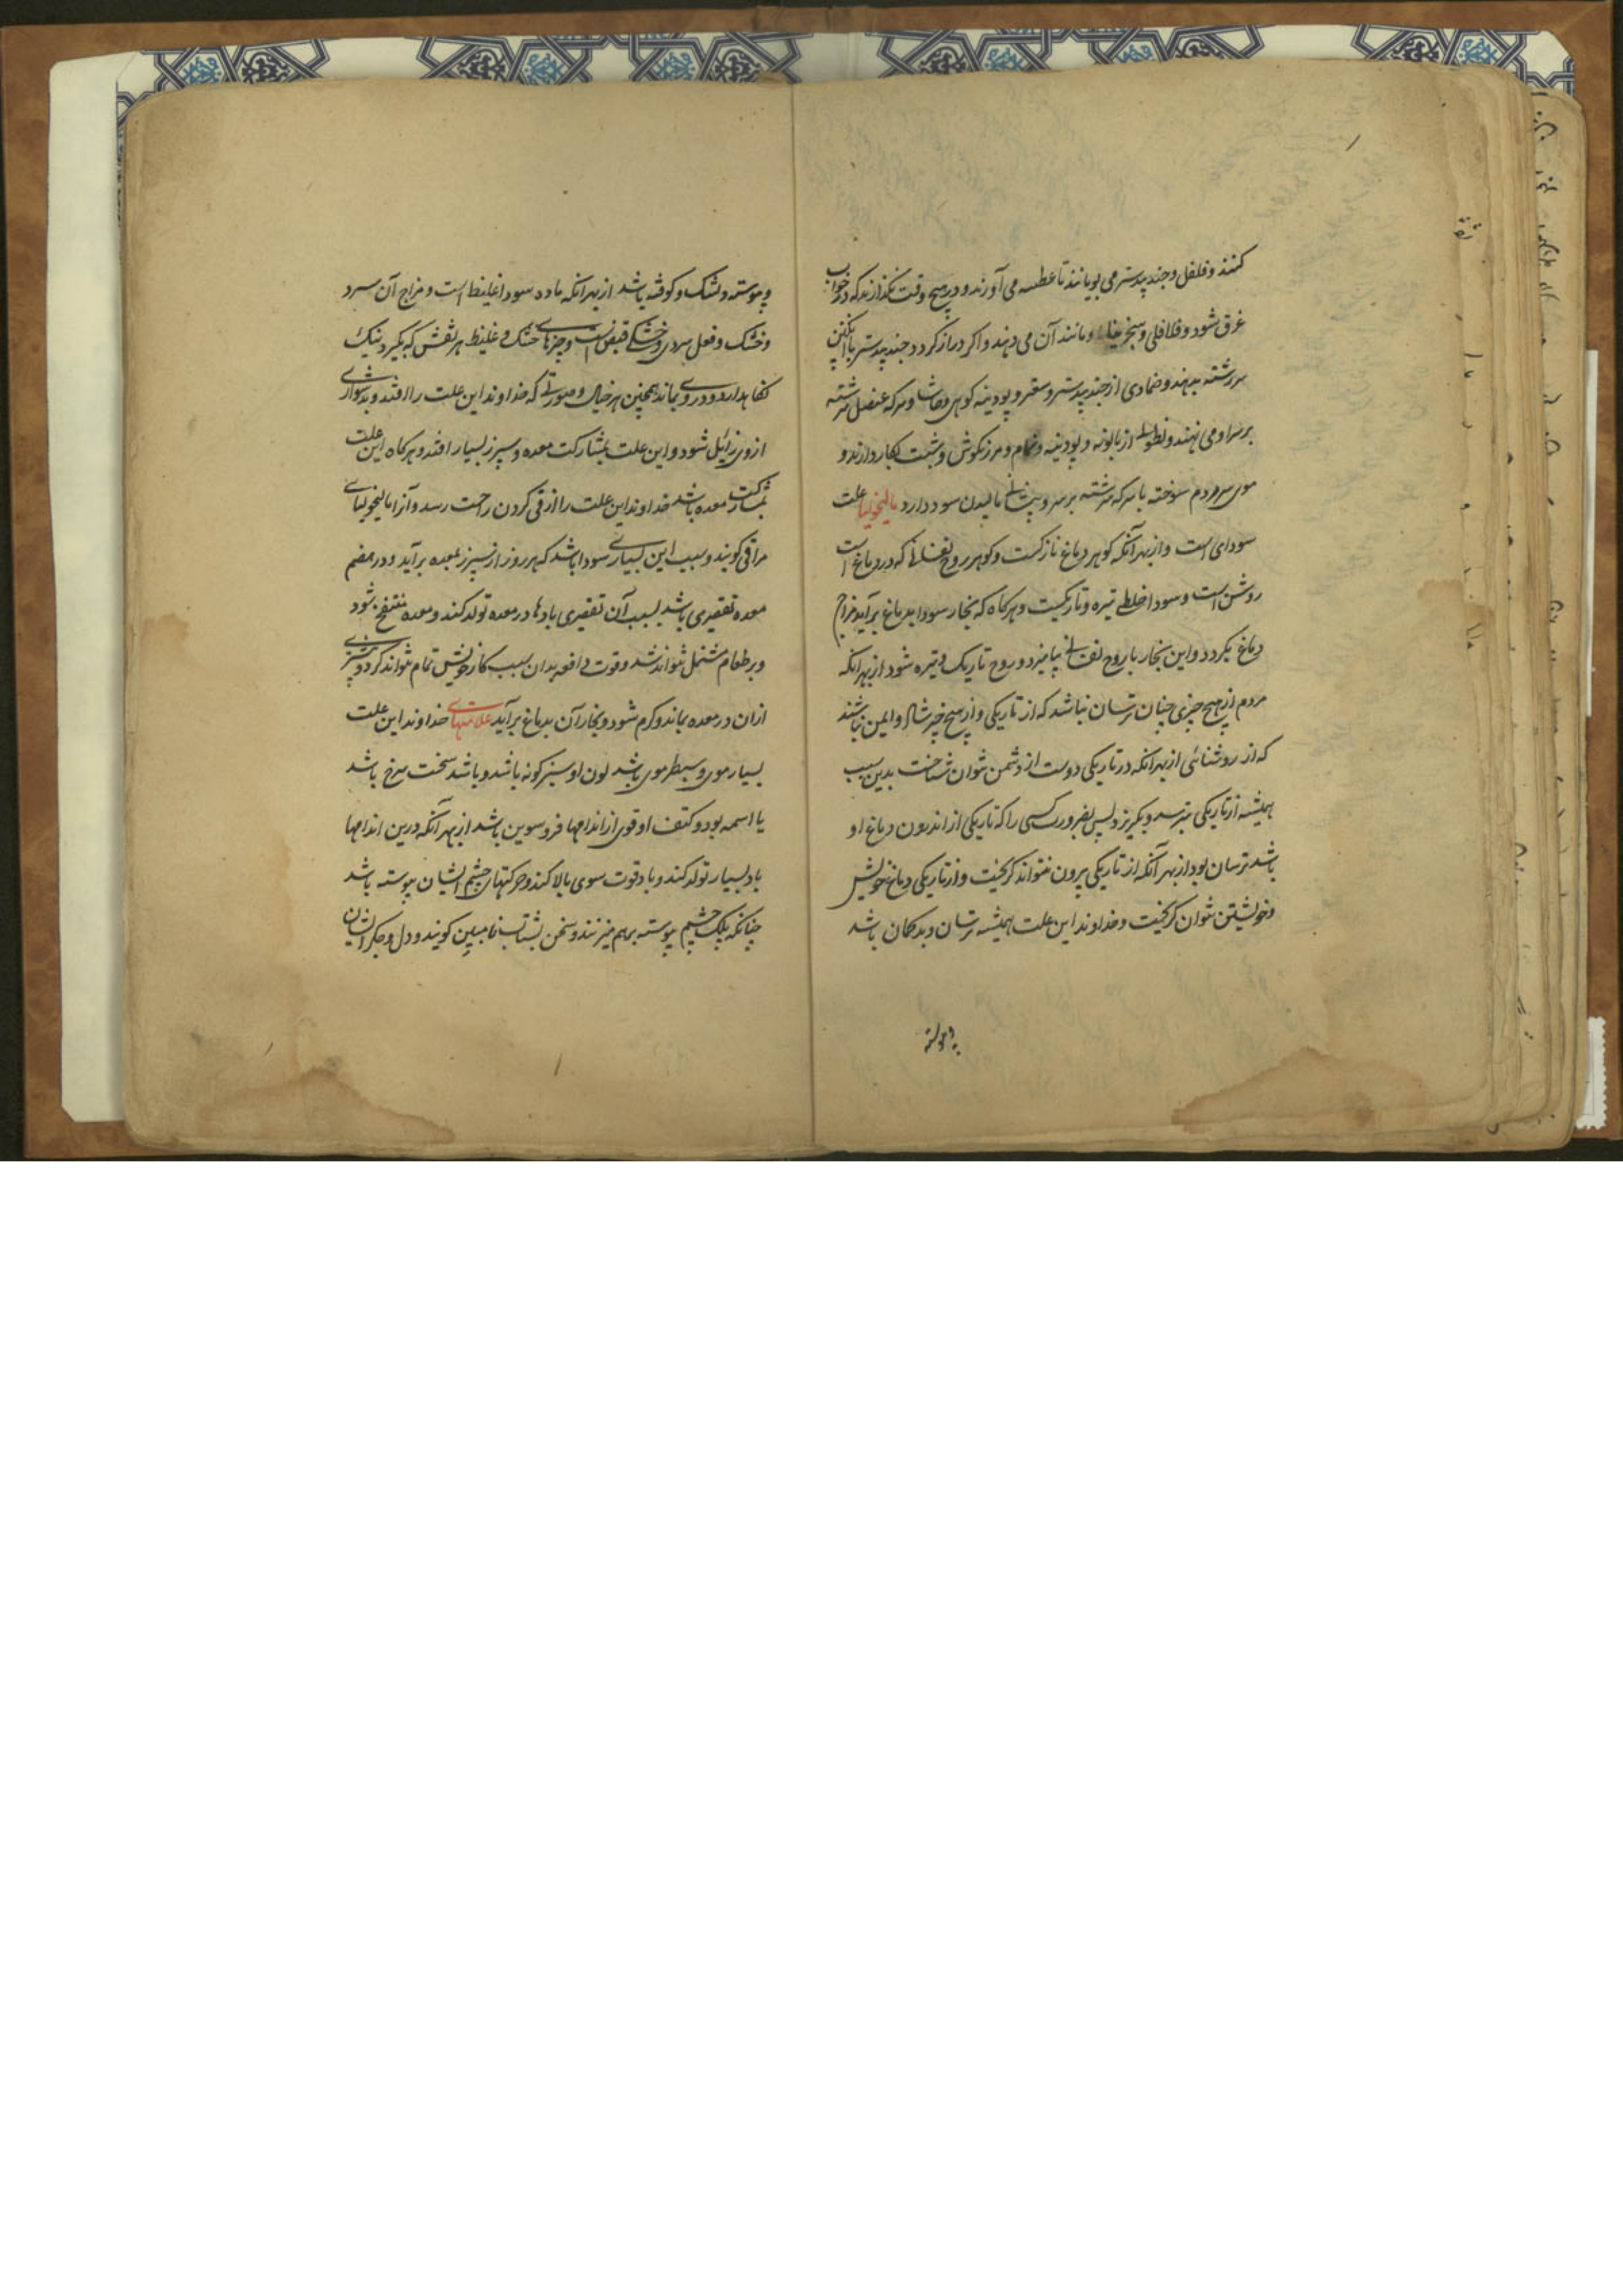 کنند و فلفل و جندبیدستر می بویانند تا عطسه می آورند و در هیچ وقت نگذارند که در خواب
غرق شود و فلافلی و سنجرینا و مانند آن می دهند و اکر دراز کردد جندبیدستر با انگبین
سرشته بدهند و ضمادی از جندبیدستر و سعتر و پودینه کوهی و حاشا و سرکه عنصل سرشته
بر سر او می نهند و نطول از بابونه و پودینه و نمام و مرزنکوش و شبت بکار دارند و
موی سر مردم سوخته با سرکه سرشته بر سر و پیشانی مالیدن سود دارد مالیخولیا علت
سودای است و از بهر آنکه کوهر دماغ نازکست و کوهر روح نفسانی که در دماغ است
روشن است و سودا خلطی تیره و تاریکست و هرکاه که بخار سودا بدماغ برآید مزاج
دماغ بکردد و این بخار با روح نفسانی بیامیزد و روح تاریک و تیره شود از بهر انکه
مردم از هیچ چیزی چنان ترسان نباشد که از تاریکی و از هیچ چیز شاد و ایمن نباشند
که از روشنائی از بهر انکه در تاریکی دوست از دشمن نتوان شناخت بدین سبب
همیشه از تاریکی بترسد و بکریزد پس بضرورت کسی را که تاریکی از اندرون دماغ او
باشد ترسان بود از بهر آنکه از تاریکی بیرون بتواند کریخت و از تاریکی دماغ خویش
و خویشتن نتوان کریخت و خداوند این علت همیشه ترسان و بدکمان باشد
و پیوسته
و پیوسته دلتنک و کوفته باشد از بهر انکه ماده سودا غلیظ است و مزاج آن سرد
و خشک و فعل سردی و خشکی قبض است و چیزهای خشک و غلیظ هر نقش که بگیرد نیک
نکاهدارد و در وی بماند همچنین هر خیال و صورتی که خداوند این علت را افتد و بدشواری
از وی زایل شود و این علت بمشارکت معده و سپرز بسیار افتد و هرکاه این علت
بمشارکت معده باشد خداوند این علت را از قی کردن راحت رسد و آنرا مالیخولیای
مراقی کویند و سبب این بسیاری سودا باشد که هر روز از سپرز بمعده برآید و در هضم
معده تقصیری باشد بسبب آن تقصیری بادها در معده تولد کند و معده منتفخ شود
و بر طعام مشتمل نتواند شد و قوت دافعه بدان سبب کار خویش تمام نتواند کرد و چیزی
ازان در معده بماند و کرم شود و بخار آن بدماغ برآید علامتهای خداوند این علت
بسیار موی و سطبر موی باشد لون او سبز کونه باشد و باشد سخت سرخ باشد
یا اسمه بود و کتف او قوی از اندامها فروسوین باشد از بهر آنکه درین اندامها
باد بسیار تولد کند و باد قوت سوی بالا کند و حرکتهای چشم ایشان پیوسته باشد
چنانکه پلک چشم پیوسته برهم میزنند و سخن بشتاب نامبین کویند و دل و جکر ایشان